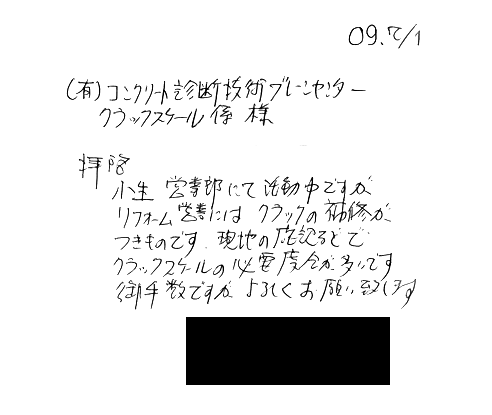 09.7/1
(有)コンクリート診断技術ブレーンセンター
クラックスケール係 様
拝啓
小生 営業部にて活動中ですが
リフォーム営業には クラックの補修が
つきものです. 現地の
クラックスケールの必要度合が多いです
御手数ですが よろしくお願い致します